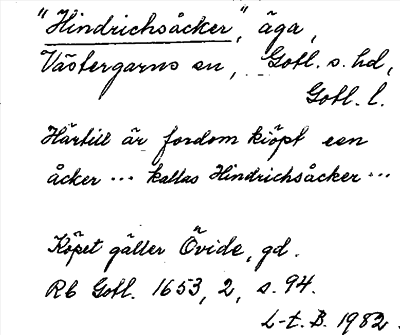 "Hindrichsåcker", äga,
Västergarns sn, Gotl. s. hd,
Gotl. l.
Härtill är fordom kiöpt een
åcker ... kallas Hindrichsåcker ...
Köpet gäller Övide, gd.
Rb Gotl. 1653, 2, s. 94.
L-t. B. 1982.